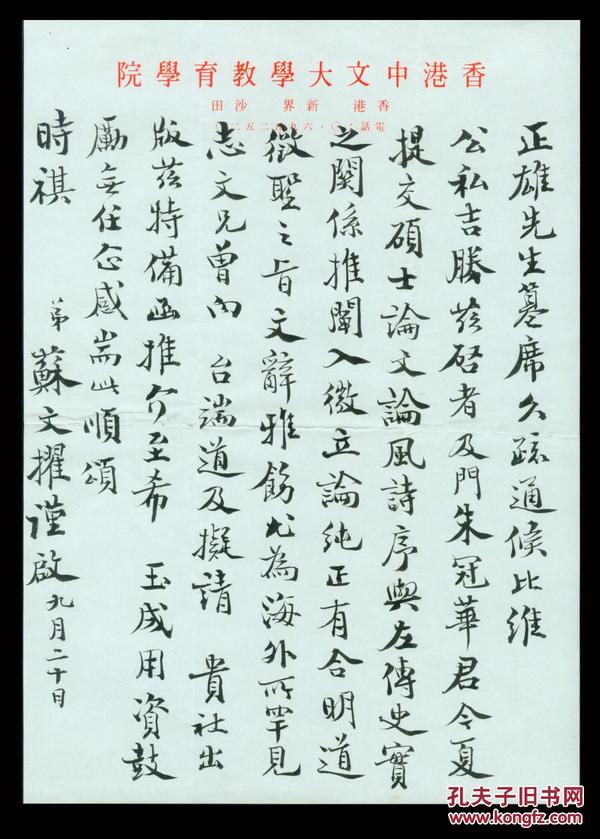 香港中文大學教育學院
香港 新界 沙田
電話：〇・六九
正雄先生墓席久疏通候比維
公私吉勝茲啓者及門朱冠華君今夏
提交碩士論文論風詩序與左傳史實
之関係推闡入微立論純正有合明道
徵聖之旨文辭雅飭尤為海外所罕見
志文兄曾向 台端道及擬請 貴社出
版茲特備函推介至希 玉成用資鼓
勵無任企感耑此順頌
時祺
弟 蘇文擢謹啟九月二十日
孔夫子旧书网
KONGFZ.COM